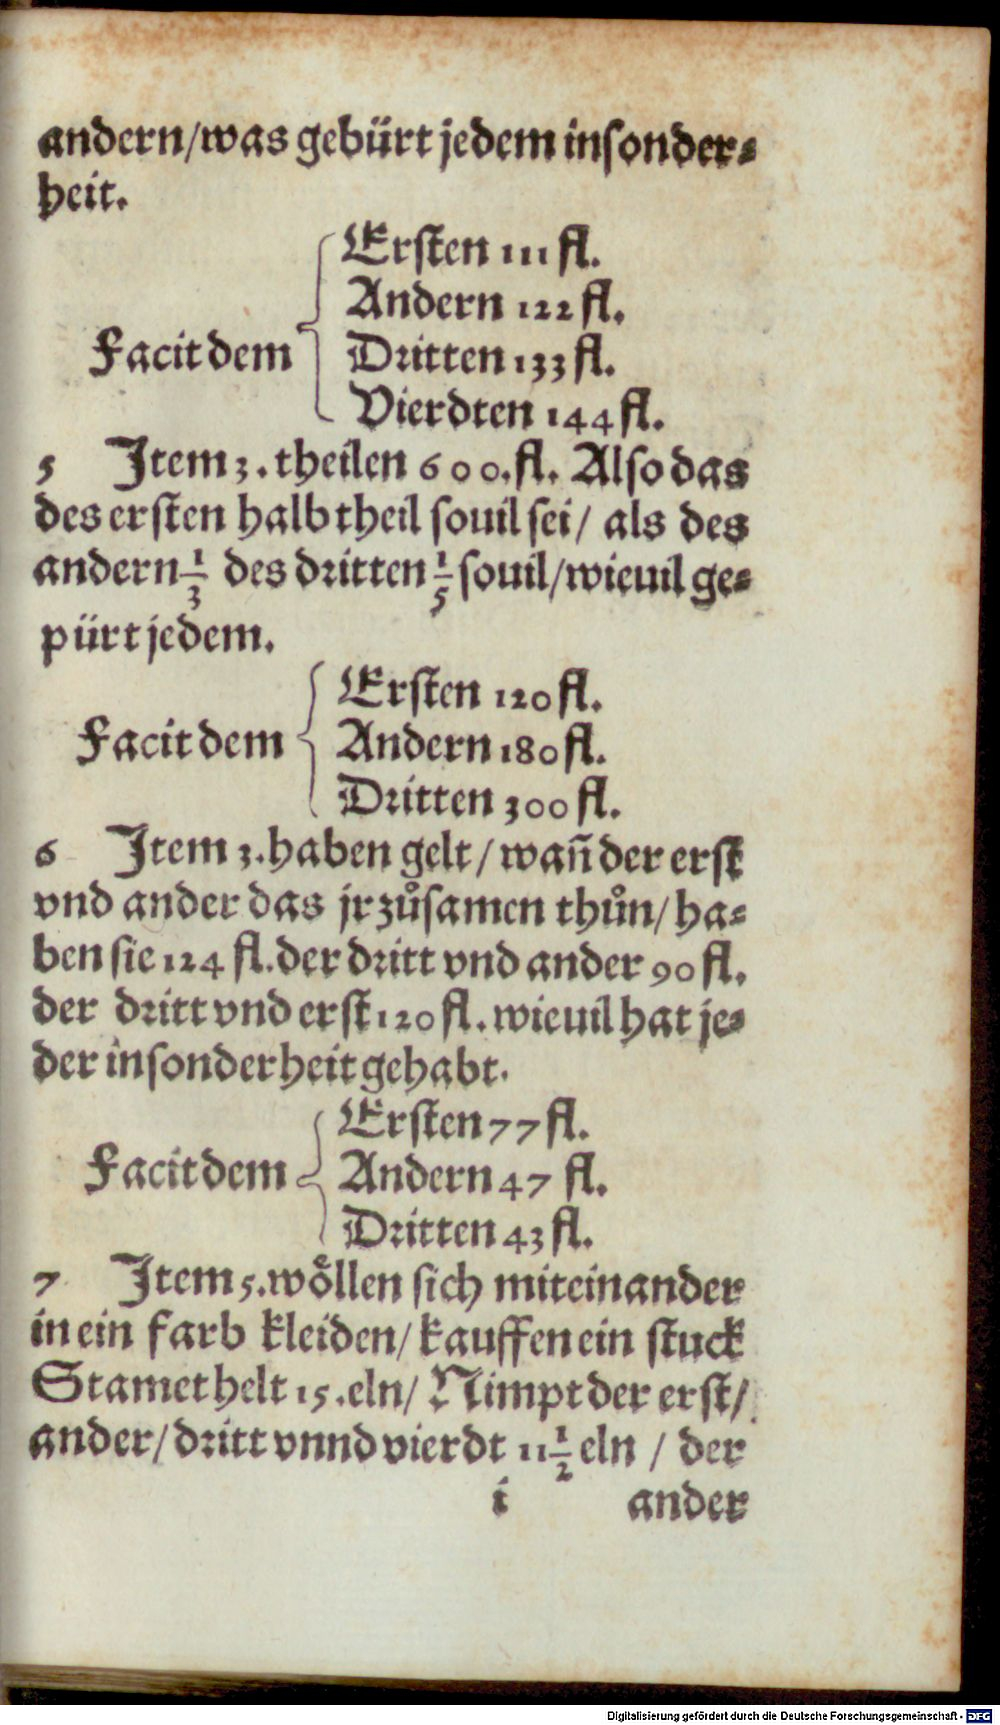 andern/was gebürt jedem insonder-
heit.
Ersten 111 fl.
Andern 122 fl.
Facit dem
Dritten 133 fl.
Vierdten 144 fl.
5 Item 3. theilen 600. fl. Also das
des ersten halb theil souil sei/ als des
andern 1/3 des dritten 1/5 souil/wieuil ge-
pürt jedem.
Ersten 120 fl.
Facit dem Andern 180 fl.
Dritten 300 fl.
6 Item 3. haben gelt/ wañ der erst
vnd ander das jr zůsamen thůn/ ha-
ben sie 124 fl. der dritt vnd ander 90 fl.
der dritt vnd erst 120 fl. wieuil hat je-
der insonderheit gehabt.
Ersten 77 fl.
Facit dem Andern 47 fl.
Dritten 43 fl.
7 Item 5. woͤllen sich miteinander
in ein farb kleiden/ kauffen ein stuck
Stamet helt 15. eln/ Nimpt der erst/
ander/ dritt vnnd vierdt 11 1/2 eln / der
i ander
Digitalisierung gefördert durch die Deutsche Forschungsgemeinschaft - DFG